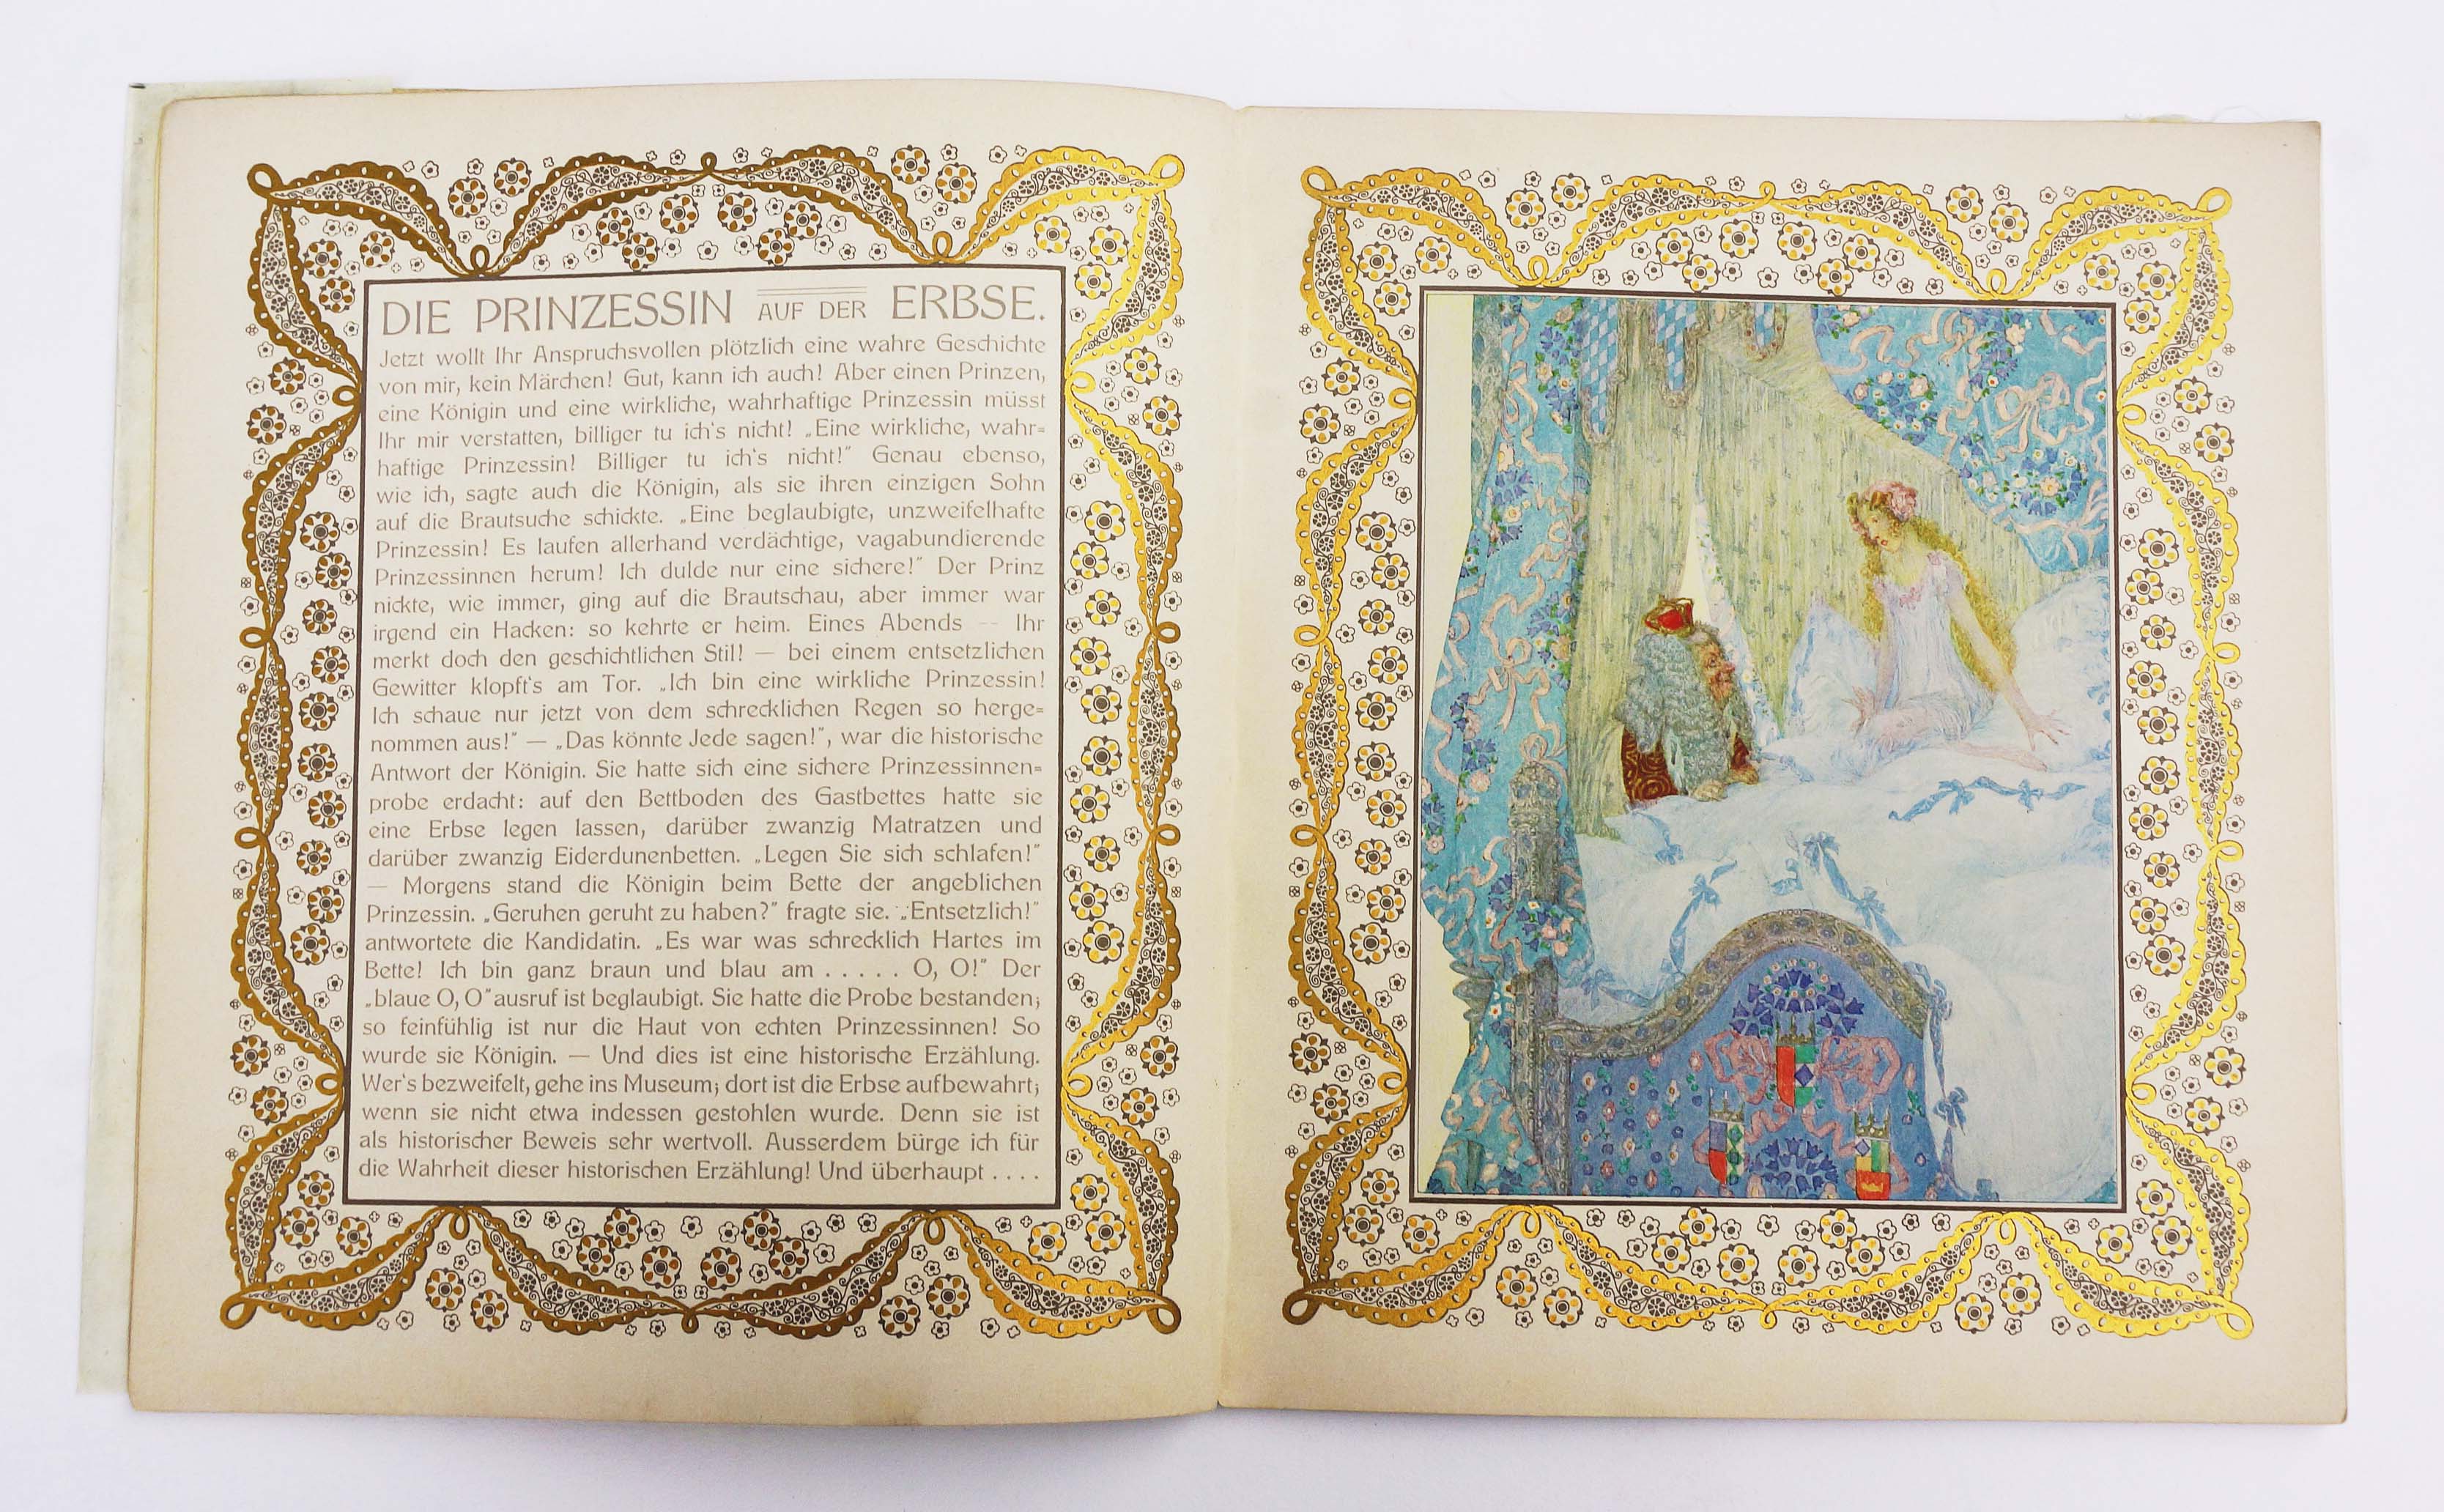 DIE PRINZESSIN AUF DER ERBSE.
Jetzt wollt Ihr Anspruchsvollen plötzlich eine wahre Geschichte
von mir, kein Märchen! Gut, kann ich auch! Aber einen Prinzen,
eine Königin und eine wirkliche, wahrhaftige Prinzessin müsst
Ihr mir verstatten, billiger tu ich's nicht! „Eine wirkliche, wahr=
haftige Prinzessin! Billiger tu ich's nicht!“ Genau ebenso,
wie ich, sagte auch die Königin, als sie ihren einzigen Sohn
auf die Brautsuche schickte. „Eine beglaubigte, unzweifelhafte
Prinzessin! Es laufen allerhand verdächtige, vagabundierende
Prinzessinnen herum! Ich dulde nur eine sichere!“ Der Prinz
nickte, wie immer, ging auf die Brautschau, aber immer war
irgend ein Hacken: so kehrte er heim. Eines Abends — Ihr
merkt doch den geschichtlichen Stil! — bei einem entsetzlichen
Gewitter klopft's am Tor. „Ich bin eine wirkliche Prinzessin!
Ich schaue nur jetzt von dem schrecklichen Regen so herge=
nommen aus!“ — „Das könnte Jede sagen!“, war die historische
Antwort der Königin. Sie hatte sich eine sichere Prinzessinnen=
probe erdacht: auf den Bettboden des Gastbettes hatte sie
eine Erbse legen lassen, darüber zwanzig Matratzen und
darüber zwanzig Eiderdunenbetten. „Legen Sie sich schlafen!“
— Morgens stand die Königin beim Bette der angeblichen
Prinzessin. „Geruhen geruht zu haben?“ fragte sie. „Entsetzlich!“
antwortete die Kandidatin. „Es war was schrecklich Hartes im
Bette! Ich bin ganz braun und blau am . . . . . O, O!“ Der
„blaue O, O“ausruf ist beglaubigt. Sie hatte die Probe bestanden;
so feinfühlig ist nur die Haut von echten Prinzessinnen! So
wurde sie Königin. — Und dies ist eine historische Erzählung.
Wer's bezweifelt, gehe ins Museum; dort ist die Erbse aufbewahrt;
wenn sie nicht etwa indessen gestohlen wurde. Denn sie ist
als historischer Beweis sehr wertvoll. Ausserdem bürge ich für
die Wahrheit dieser historischen Erzählung! Und überhaupt . . . .